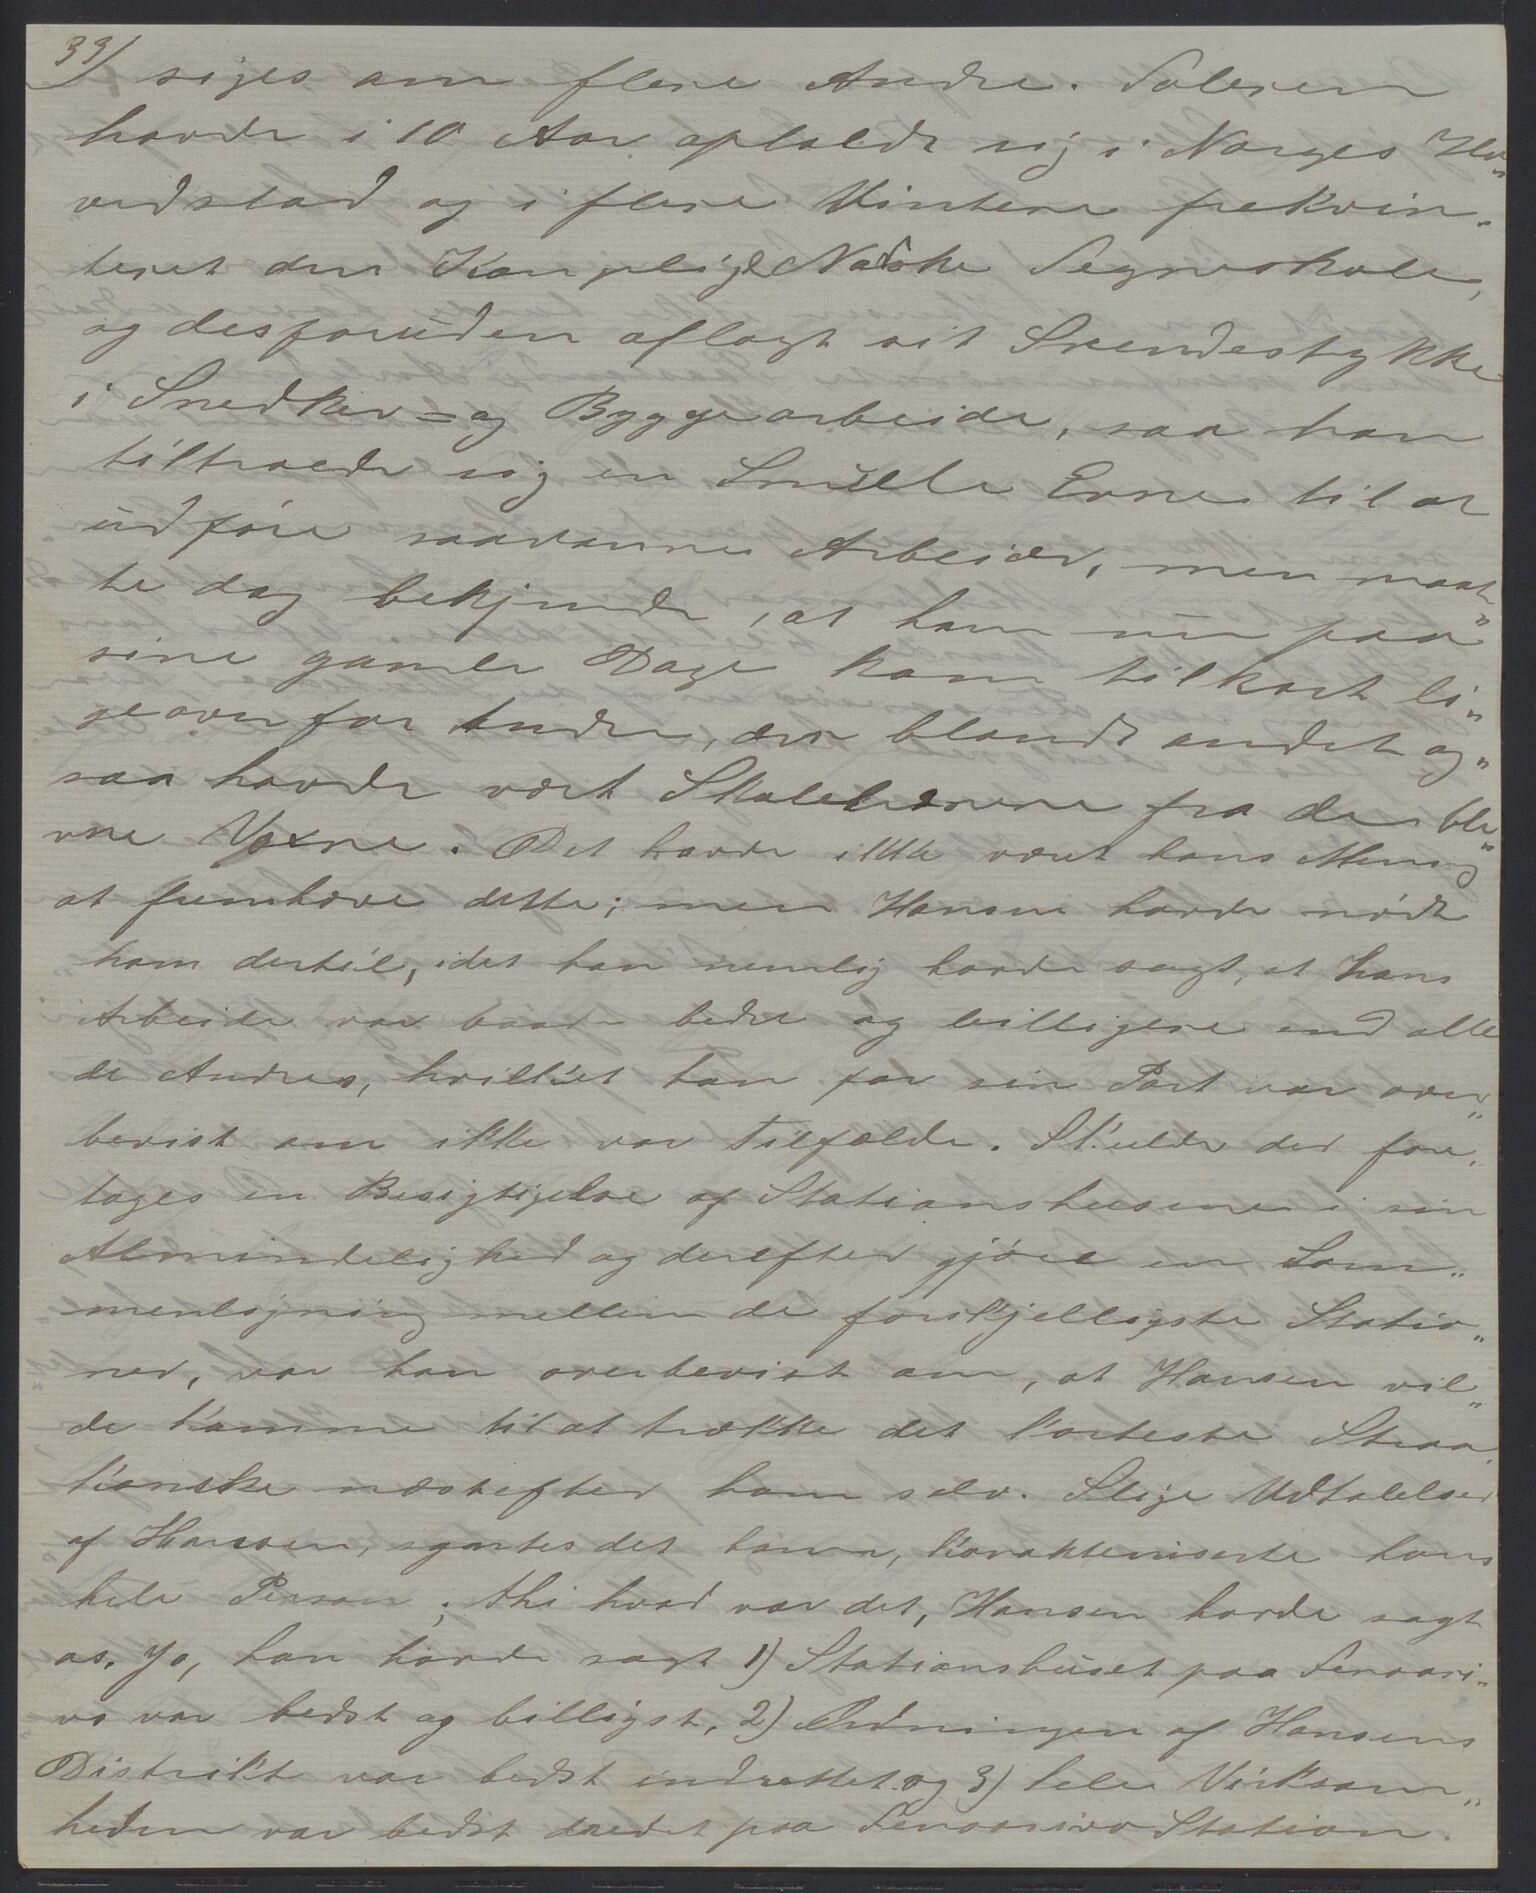 33/ siges om flere Andre. Taleren
havde i 10 Aar opholdt sig i Norges Ho„
vedstad og i flere Vintere frekvin„
teret den Kongelige Norske Tegneskole,
og desforuden aflagt sit Svendestykke
i Snedker= og Byggearbeide, saa han
tiltroede sig en Smule Evne til at
udføre saadanne Arbeider, men maat„
te dog bekjende, at han nu paa
sine gamle Dage kom tilkort li„
geoverfor Andre, der blandt andet og„
saa havde vært Skolelærere fra de ble„
vne Voxne. Det havde ikke været hans Mening
at fremhæve dette; men Hansen havde nødt
ham dertil, idet han nemlig havde sagt, at hans
Arbeide var baade bedre og billigere end alle
de Andres, hvilket han for sin Part var over„
bevist om ikke var Tilfælde. Skulde der fore„
tages en Besigtigelse af Stationshusene i sin
Almindelighed og derefter gjøre en Sam„
menligning mellem de forskjelligste Statio„
ner, var han overbevist om, at Hansen vil„
de komme til at trække det korteste Straa,
kanske næstefter ham selv. Slige Udtalelser
af Hansen, syntes det ham, karakteriserte hans
hele Person; thi hvad var det, Hansen havde sagt
os. Jo, han havde sagt 1) Stationshuset paa Fenoari„
vo var bedst og billigst, 2) Ordningen af Hansens
Distrikt var bedst indrettet og 3) hele Virksom„
heden var bedst drevet paa Fenoarivo Station.